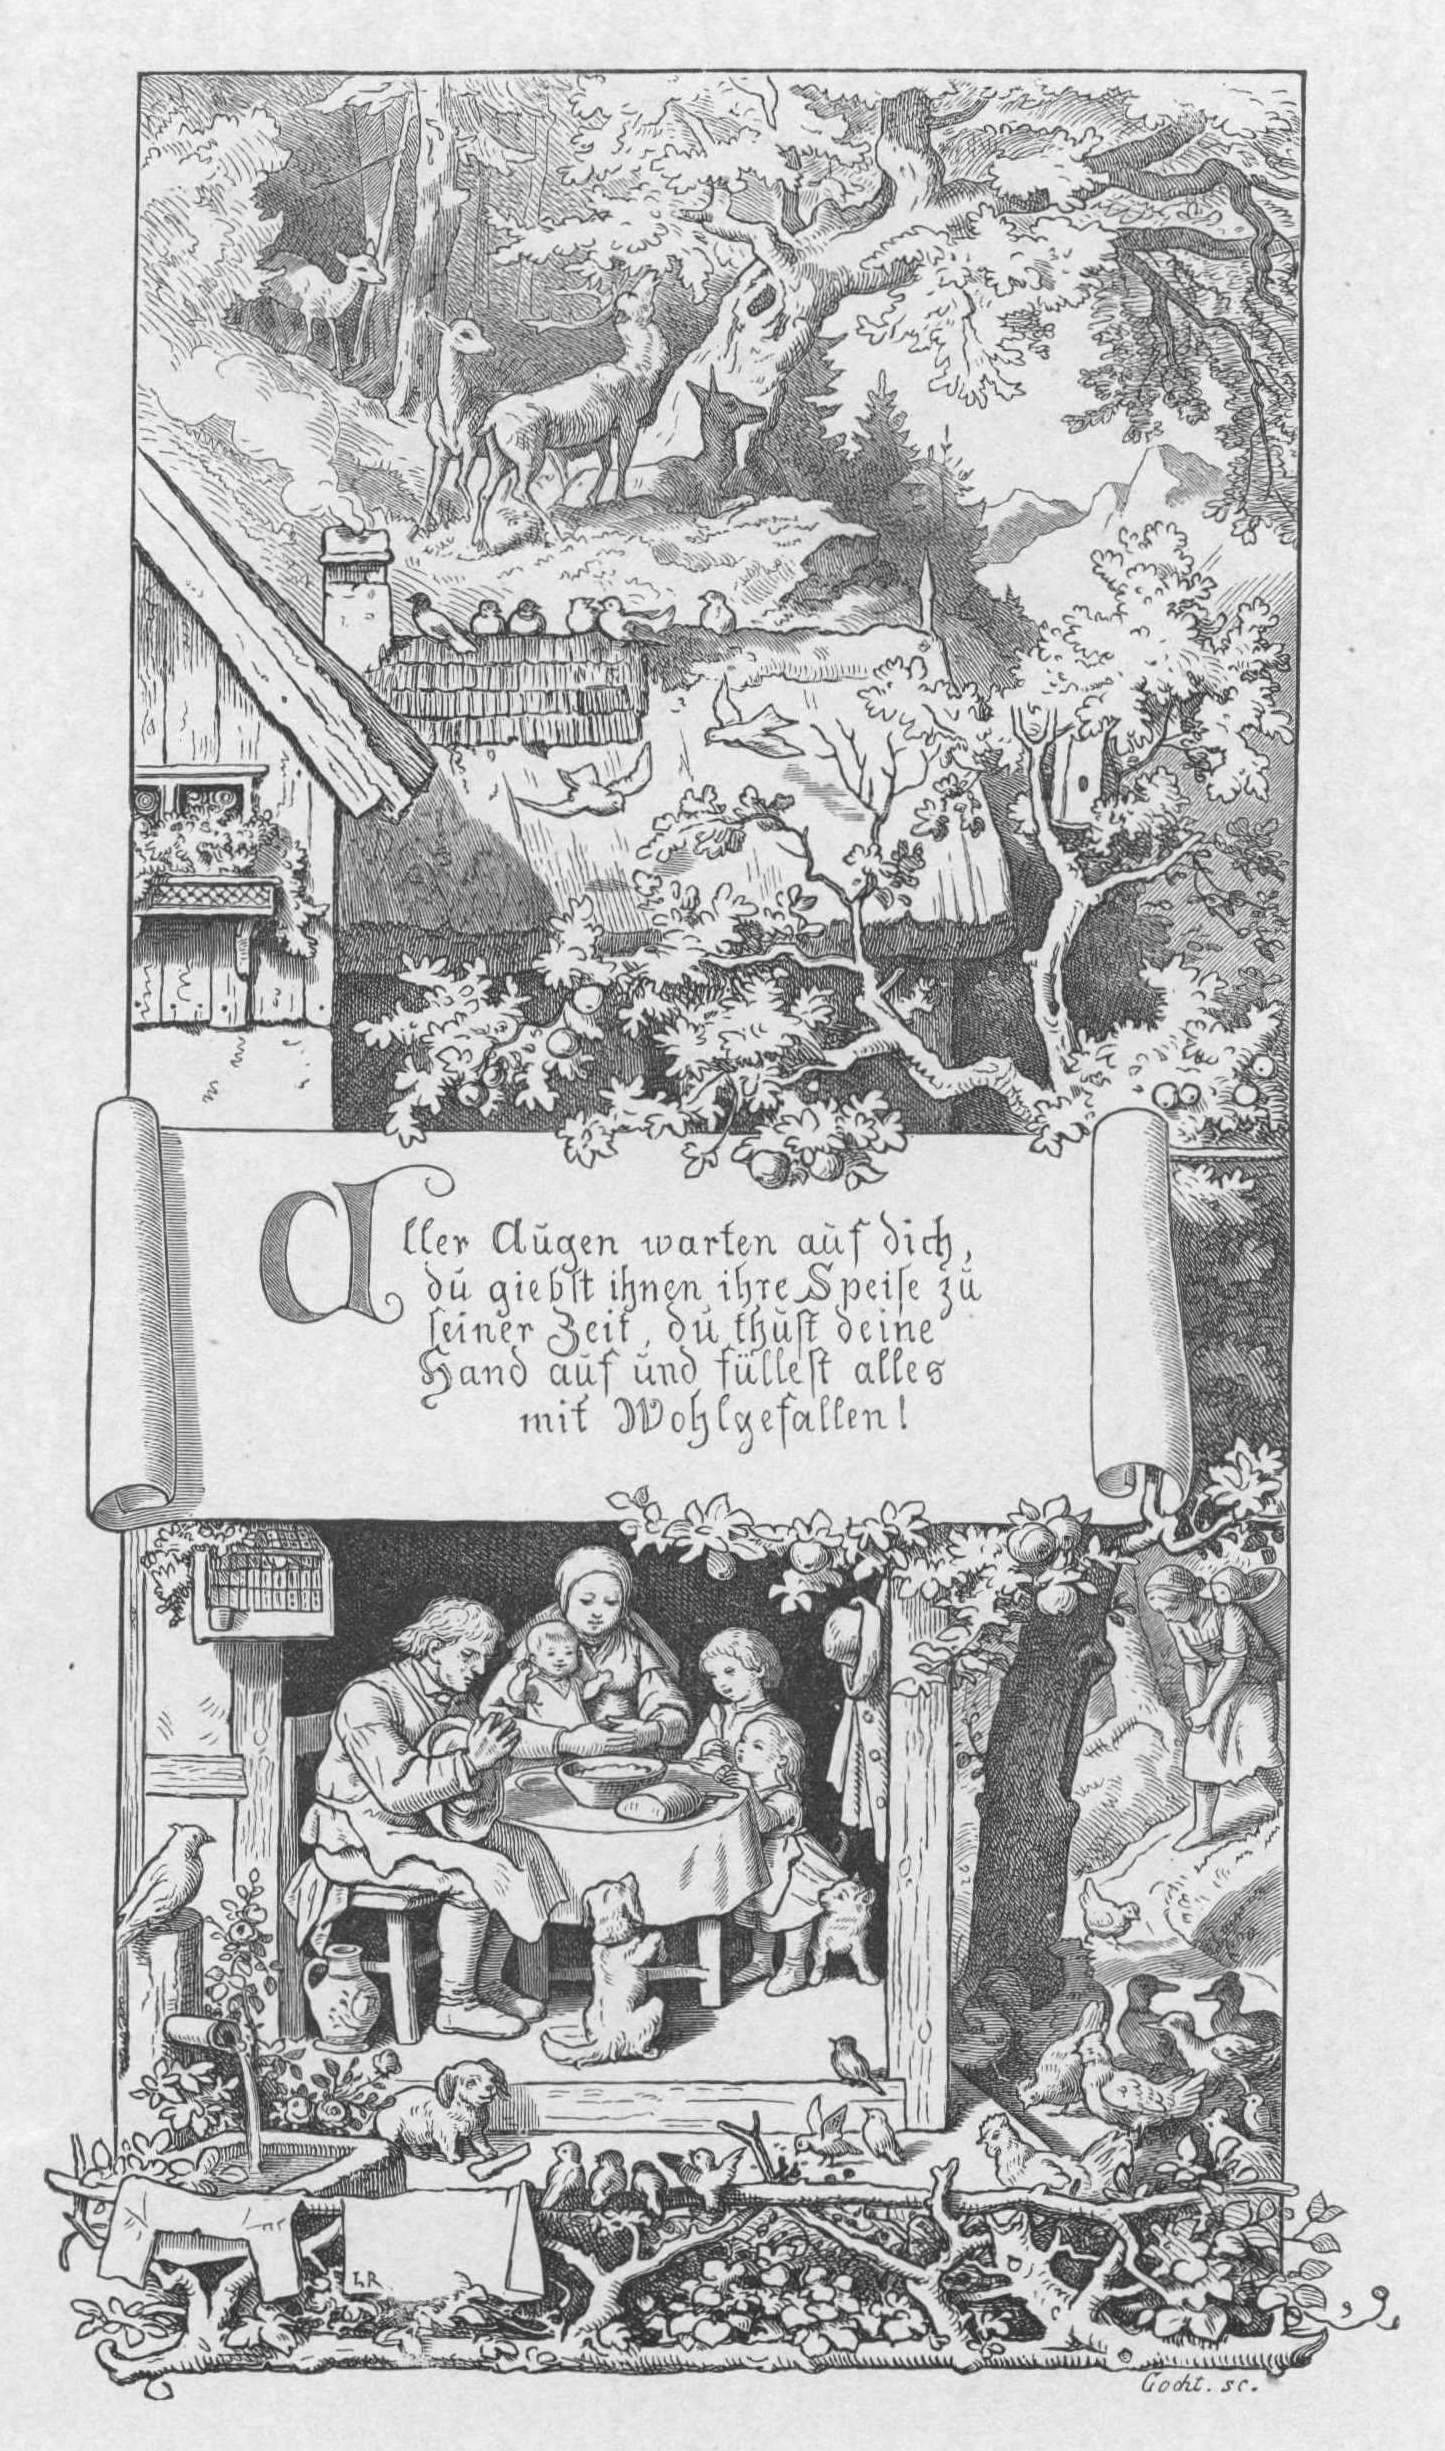 Aller Augen warten auf dich,
du giebst ihnen ihre Speise zu
seiner Zeit, du thust deine
Hand auf und füllest alles
mit Wohlgefallen!
LR
Gocht. sc.